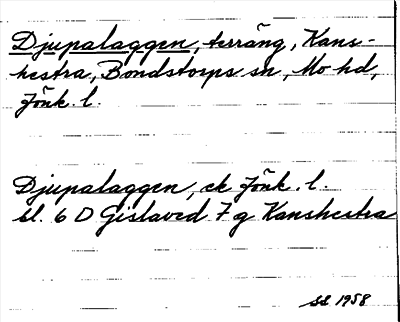 Djupalaggen, terräng, Kans-
hestra, Bondstorps sn, Mo hd,
Jönk. l.
Djupalaggen, ek Jönk. l.
bl. 6 D Gislaved 7 g Kanshestra
SS 1958